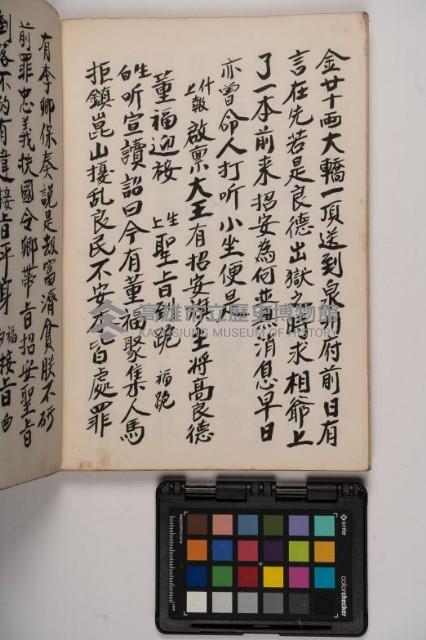 金廿十両大轎一頂送到泉州府前日有
言在先若是良德出獄之時求相爺上
了一本前来招安為何並無消息早日
亦曾命人打听小坐便是
什報上 啟禀大王有招安 生将高良德
董福迎接 生上 聖旨到跪 福跪
生白 听宣讀詔曰今有董福聚集人馬
拒鎮崑山擾乱良民不安 皆處罪
有李卿保奏説是刼富濟貧朕不
前罪忠義扶國令卿帶旨招安聖旨
到落不 有違接旨平身 福 接旨
高雄市立歷史博物館
KAOHSIUNG MUSEUM OF HISTORY
x-rite
colorchecker